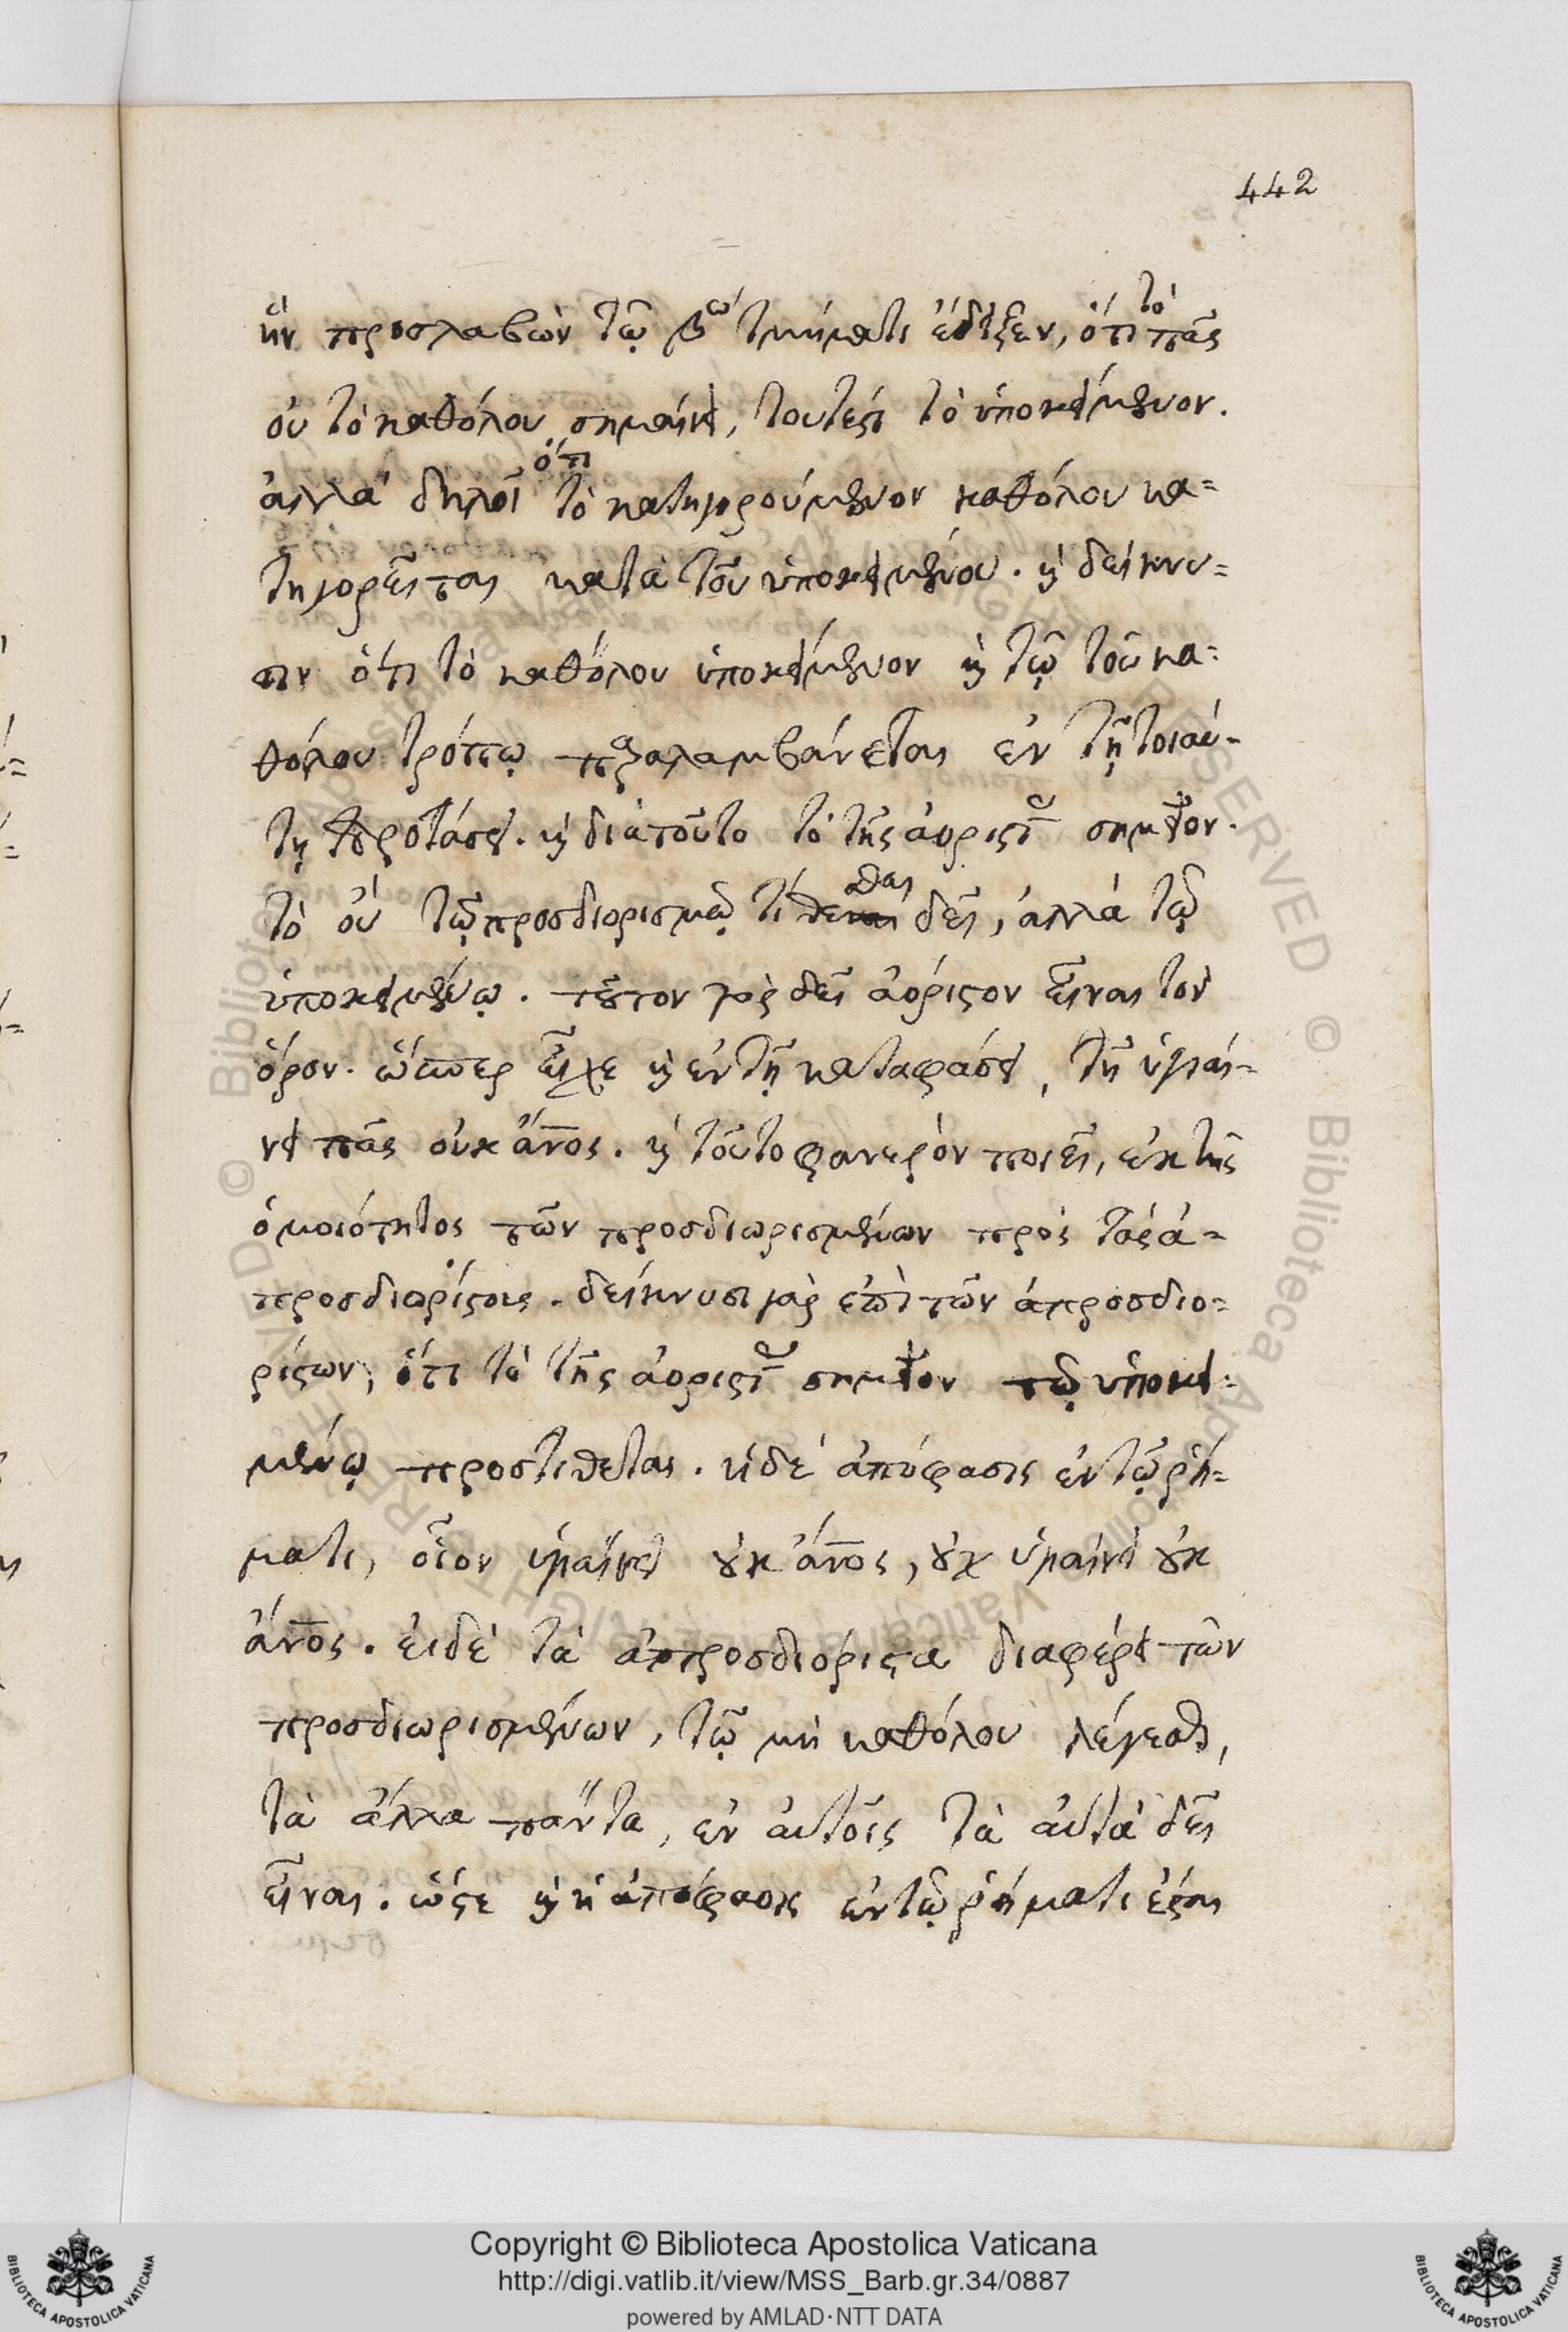 442
ἣν προσλαβὼν τῶ βω τμήματι ἔδειξεν, ὅτι τὸ πᾶς
οὐ τὸ καθόλου σημαίνει, τουτέστι τὸ ὑποκείμενον.
ἀλλὰ δηλοῖ ὅτι τὸ κατηγορούμενον καθόλου κα=
τηγορεῖται κατὰ τοῦ ὑποκειμένου. ϗ δείκνυ=
σιν ὅτι τὸ καθόλου ὑποκείμενον ϗ τῷ τοῦ κα=
θόλου τρόπῳ παραλαμβάνεται ἐν τῇ τοιαύ=
τῃ προτάσει. ϗ διατοῦτο τὸ τῆς ἀοριστί σημεῖον.
τὸ οὐ τῷ προσδιορισμῷ τίθεσθαι δεῖ, ἀλλὰ τῷ
ὑποκειμένῳ. τοῦτον γὰρ δεῖ ἀόριστον εἶναι τὸν
ὅρον. ὥσπερ εἶχε ϗ ἐν τῇ καταφάσει, τῇ ὑγιαί=
νει πᾶς οὐκ ἄνος. ϗ τοῦτο φανερὸν ποιεῖ, ἐκ τῆς
ὁμοιότητος τῶν προσδιωρισμένων πρὸς τὰς ἀ=
προσδιορίστους. δείκνυσι γὰρ ἐπὶ τῶν ἀπροσδιο=
ρίστων, ὅτι τὸ τῆς ἀοριστί σημεῖον τῷ ὑποκει=
μένῳ προστίθεται. ἡδὲ ἀπόφασις ἐν τῷ ῥή=
ματι, οἷον ὑγιαίνει οὐκ ἄνος, οὐχ ὑγιαίνει οὐκ
ἄνος. εἰδὲ τὰ ἀπροσδιόριστα διαφέρει τῶν
προσδιωρισμένων, τῷ μὴ καθόλου λέγεσθαι,
τὰ ἄλλα πάντα, ἐν αὐτοῖς τὰ αὐτὰ δεῖ
εἶναι. ὥστε ϗ ἡ ἀπόφασις ἐν τῷ ῥήματι ἔσται
Copyright © Biblioteca Apostolica Vaticana
http://digi.vatlib.it/view/MSS_Barb.gr.34/0887
powered by AMLAD·NTT DATA